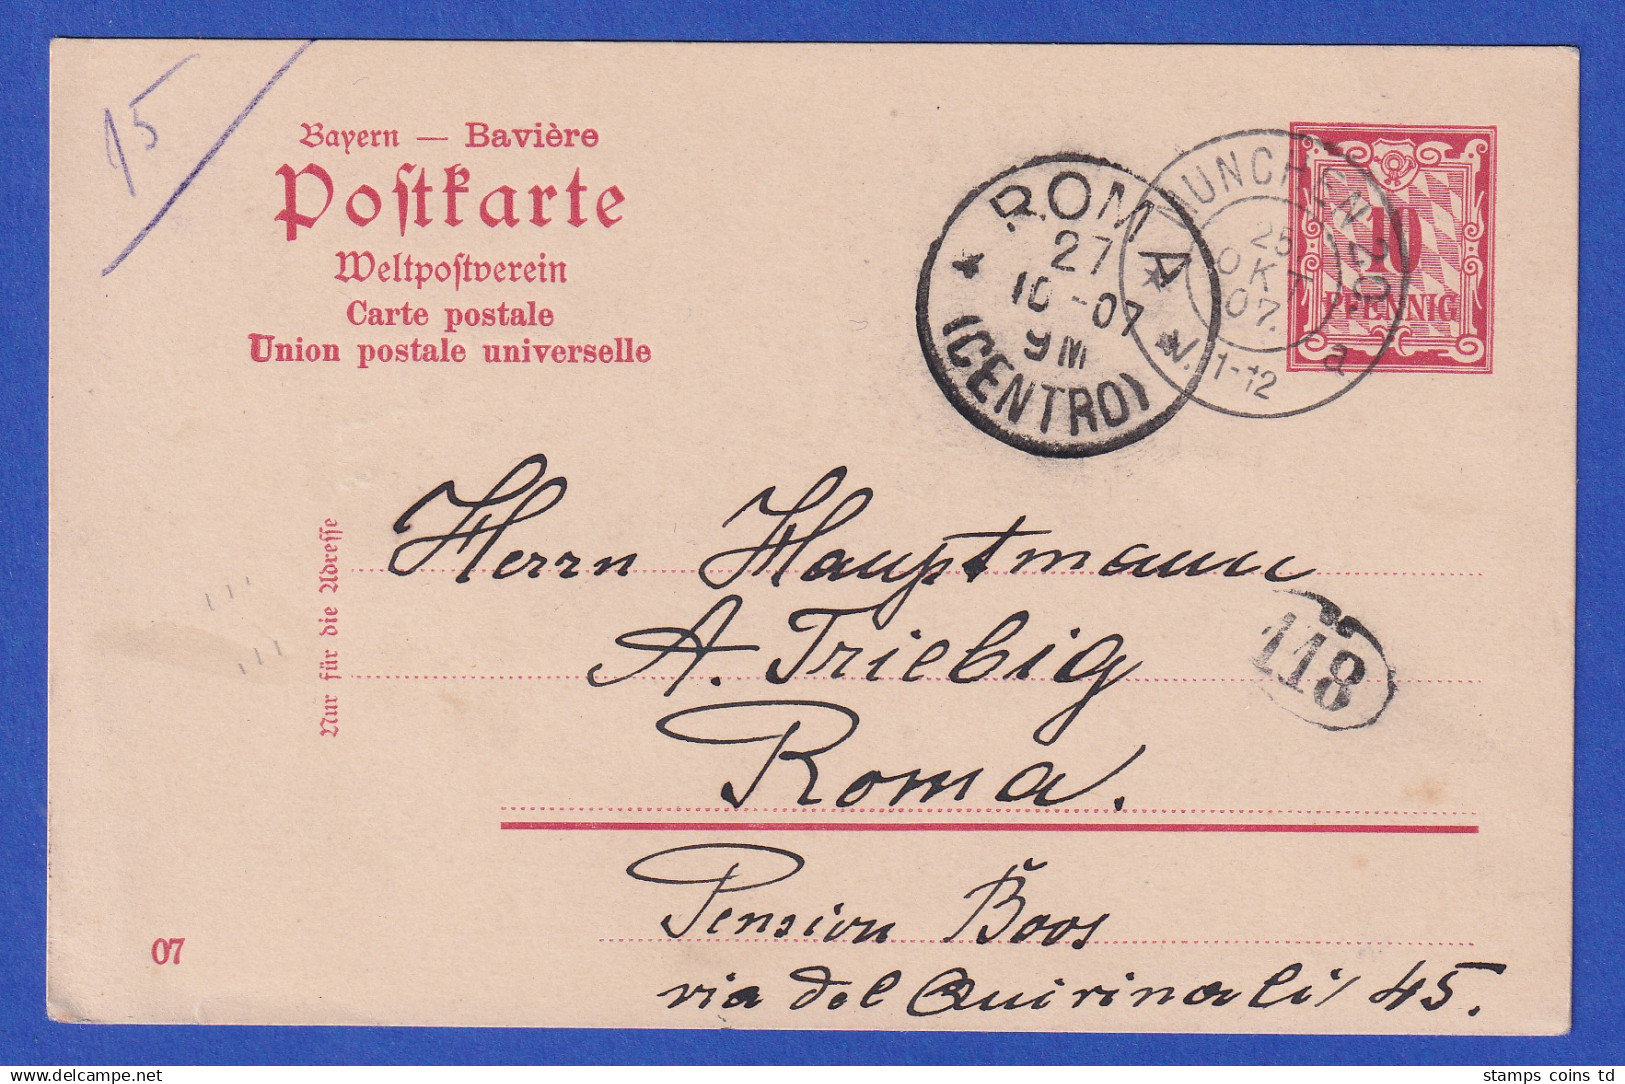 15
Bayern — Bavière
Postkarte
Weltpostverein
Carte postale
Union postale universelle
ROMA
27
10-07
9M
(CENTRO)
MÜNCHEN 20
25
OKT
07.
V. 11-12
a
10
PFENNIG
Nur für die Adresse
Herrn Hauptmann
A. Triebig
118
Roma.
Pension Boos
via del Quirinalis 45.
07
stamps coins td